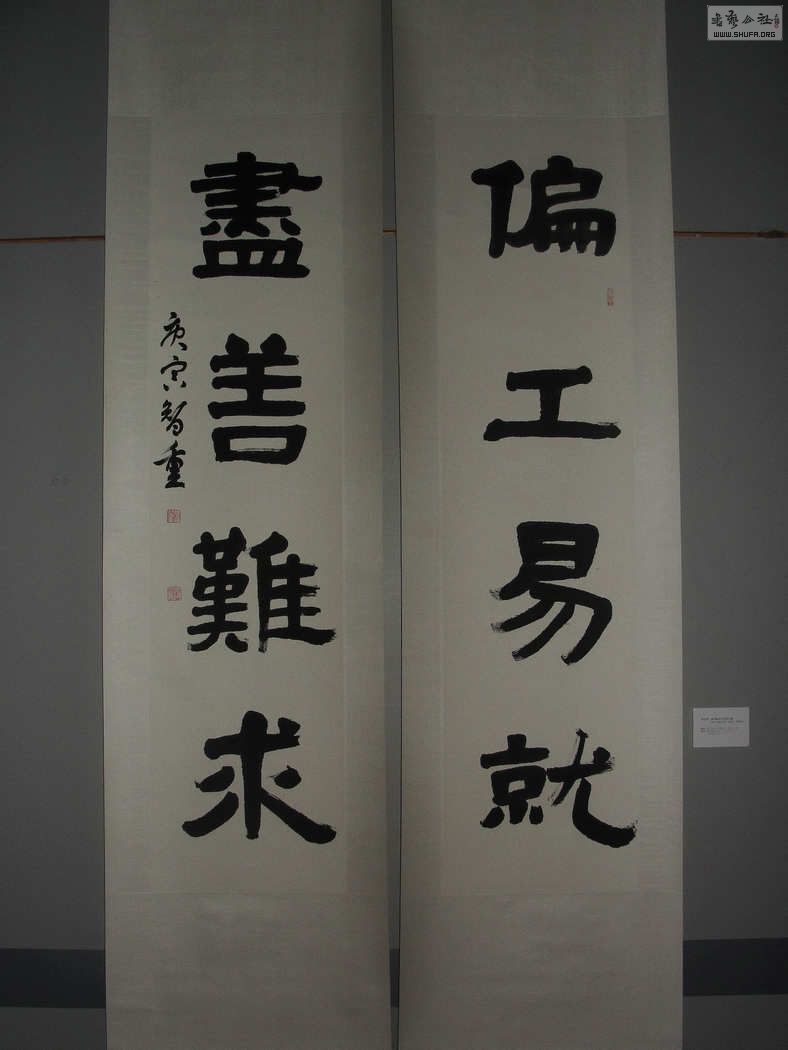 偏工易就
盡善難求
庚寅智重
WWW.SHUFA.ORG